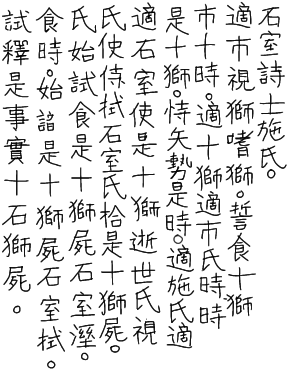 石室詩士施氏。
適市視獅嗜獅。誓食十獅
市十時。適十獅適市氏時時
是十獅。恃矢勢是時。適施氏適
適石室使是十獅逝世氏視
氏使侍拭石室氏拾是十獅屍。
氏始試食是十獅屍石室溼。
食時。始是十獅屍石室拭。
試釋是事實十石獅屍。